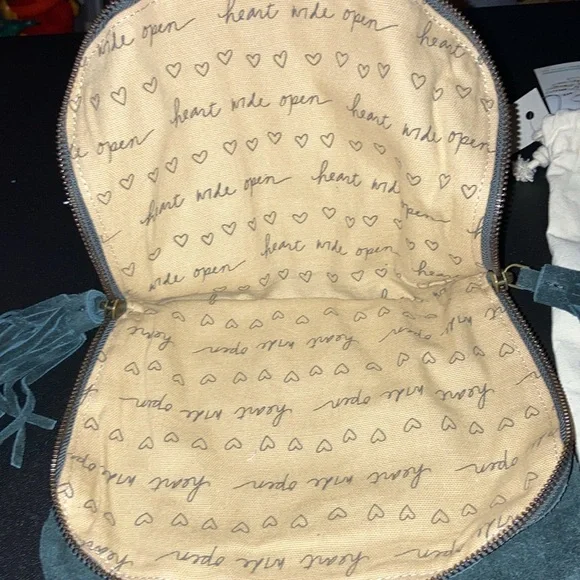 wide open heart wide open heart
heart wide open
e open heart wide open
heart wide open heart wid open
heart wide open
wide open hear
heart wide open heart wide
wide open heart wide open
open heart wide open heart wide
wide open heart wide open heart
heart wide open heart wide open
heart wide open heart wide